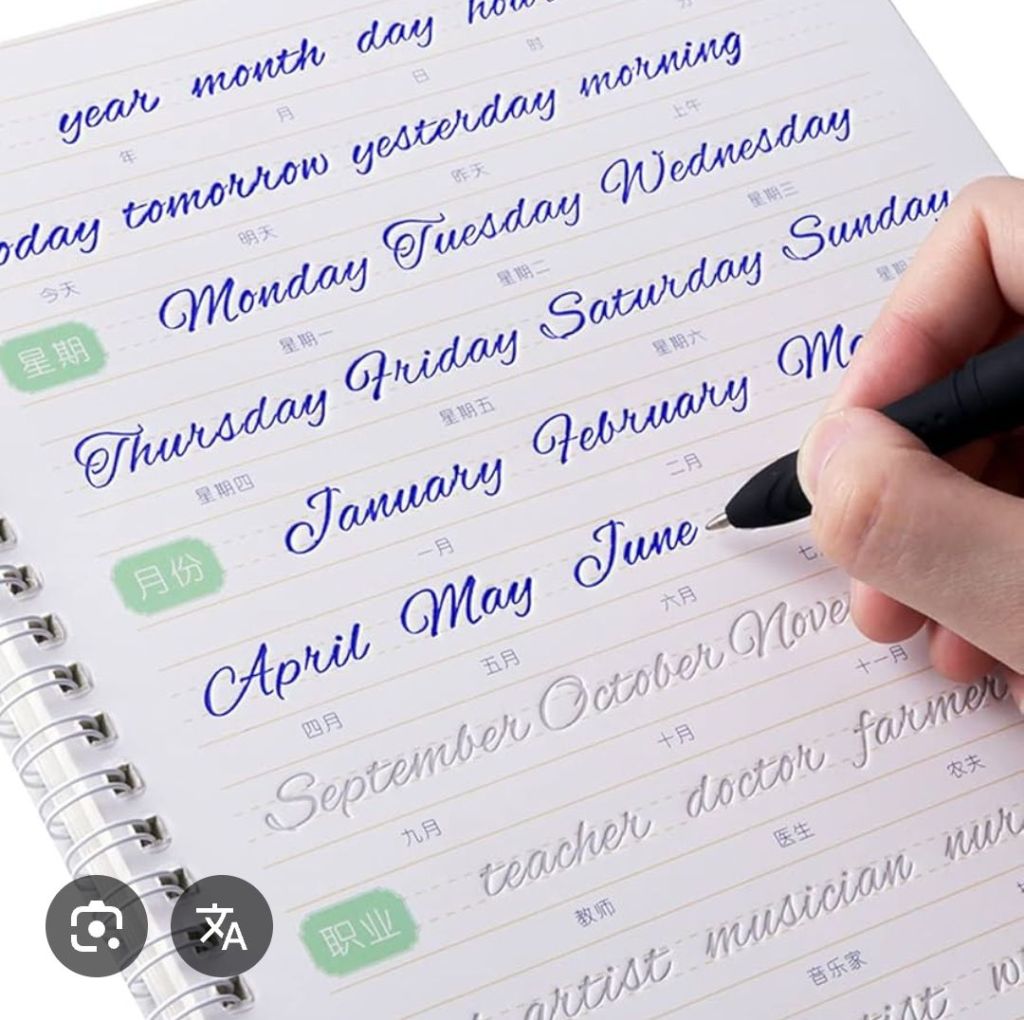 year month day
年 月 日 时 分
tomorrow yesterday morning
今天 明天 昨天 上午
星期
Monday Tuesday Wednesday
星期一 星期二 星期三
Thursday Friday Saturday Sunday
星期四 星期五 星期六
月份
January February
一月 二月
April May June
四月 五月 六月
September October
九月 十月 十一月
职业
teacher doctor farmer
教师 医生 农夫
artist musician
音乐家